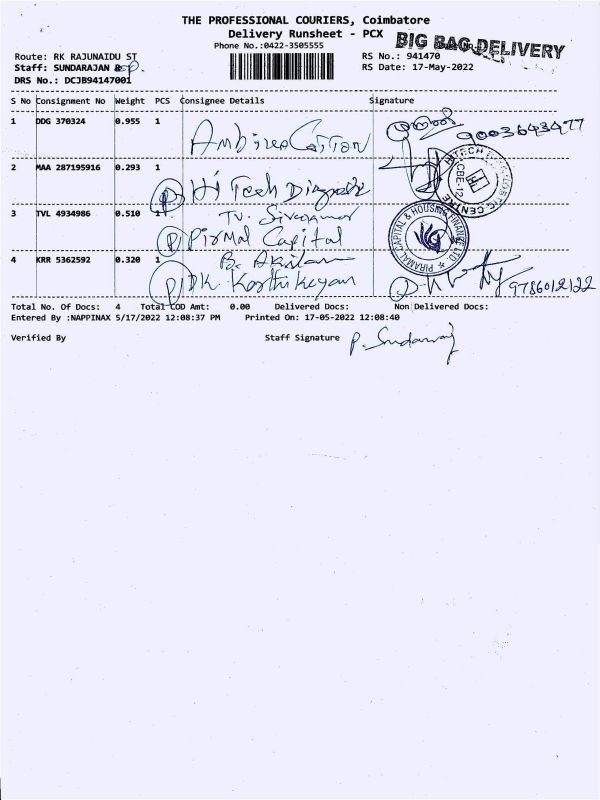 THE PROFESSIONAL COURIERS, Coimbatore
Delivery Runsheet - PCX
BIG BAG DELIVERY
Phone No.:0422-3505555
Route: RK RAJUNAIDU ST
RS No.: 941470
Staff: SUNDARAJAN
RS Date: 17-May-2022
DRS No.: DCJB94147001
S No Consignment No Weight PCS Consignee Details Signature
1 DDG 370324 0.955 1
Cotton
9003643477
2 MAA 287195916 0.293 1
P Hi Tech Diagnostic
HITECH DIAGNOSTIC CENTRE CBE-12
3 TVL 4934986 0.510 1
TV. Sivakumar
P Pirmal Capital
PIRAMAL CAPITAL & HOUSING FINANCE LTD
4 KRR 5362592 0.320 1
B. Akilan
P DK. Karthikeyan
9786012122
Total No. Of Docs: 4 Total COD Amt: 0.00 Delivered Docs: Non Delivered Docs:
Entered By :NAPPINAX 5/17/2022 12:08:37 PM Printed On: 17-05-2022 12:08:40
Verified By Staff Signature P. Sundarraj